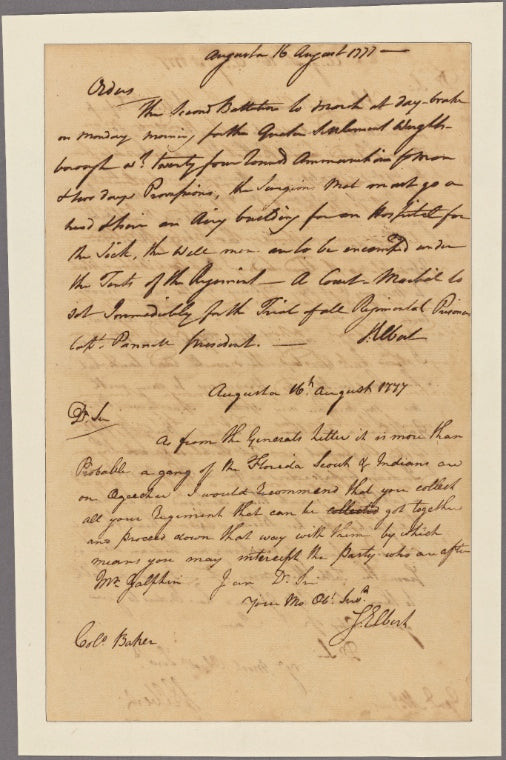 Augusta 16 August 1777 —
Orders
The Second Battalion to march at day-brake
on Monday morning for the Quaker Settlement Wrights-
borough wt. twenty four rounds Ammunition pr man
& two days Provisions, the Surgeons Mat must go a
head & have an Airy building for an Hospital for
the Sick, the well men are to be encamp'd under
the Tents of the Regiment — A Court Martial to
set Immediately for the Trial of all Regimental Prisoners
Capt. Pannell president. — S. Elbert
Augusta 16th August 1777
Dr. Sir
As from the Generals Letter it is more than
Probable a gang of the Florida Scout & Indians are
on Ogechee I would recommend that you collect
all your Regiment that can be collected got together
and proceed down that way with them by which
means you may intercept the Party who are after
Mr. Galphin I am Dr. Sir
Your Mo. Obt. Servt.
S. Elbert
Colo. Baker